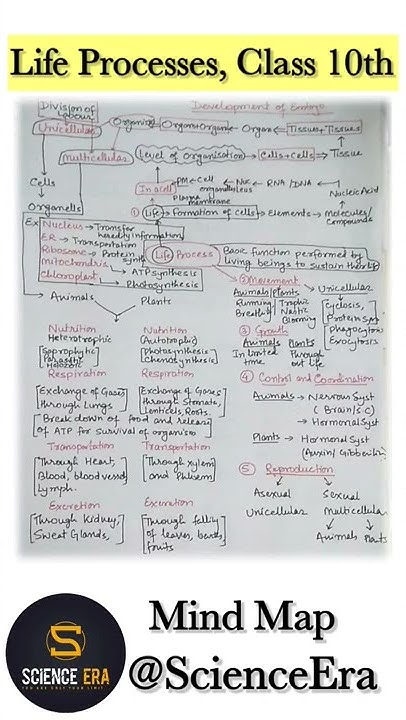 Life Processes, Class 10th
Division of Labour
Development of Embryo
Unicellular
Organism
Organ+Organ
Organ
Tissues+Tissues
Multicellular
Level of organisation
Cells+Cells
Tissue
Cells
In a cell
PM
Cell organelles
Nuc
RNA/DNA
Nucleic Acid
Plasma membrane
Organells
① Life
Formation of cells
Elements
Molecules/Compounds
Ex
Nucleus → Transfer heredity information
ER → Transportation
Ribosome → Protein synth
mitochondria → ATP synthesis
Chloroplast → Photosynthesis
Life Process
Basic function performed by living beings to sustain
Animals
Plants
② Movement
Animals Plants
Unicellular
Running Trophic
Nastic
Blooming
Cyclosis,
Exocytosis
③ Growth
Animals Plants
In limited time
Through out life
Nutrition
Heterotrophic
[Saprophytic
Parasitic
Holozoic]
Nutrition
(Autotrophic)
[Photosynthesis
Chemosynthesis]
④ Control and Coordination
Animals → Nervous Syst
(Brain/S.C)
→ Hormonal Syst
Plants → Hormonal Syst
(Auxin/Gibberlin)
Respiration
Respiration
[Exchange of Gases through Lungs
[Exchange of Gases through Stomata, Lenticels, Roots.
Break down of food and Release of ATP for survival of organism]
Transportation
Transportation
[Through Heart, Blood, blood vessel Lymph.]
[Through xylem and Phloem]
⑤ Reproduction
Asexual
Sexual
Unicellular
Multicellular
Animals Plants
Excretion
Excretion
[Through Kidney, Sweat Glands,]
[Through falling of leaves, bark, fruits]
S
SCIENCE ERA
YOU ARE ONLY YOUR LIMIT
Mind Map
@ScienceEra